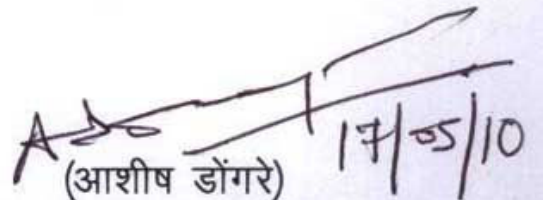 17/05/10
(आशीष डोंगरे)